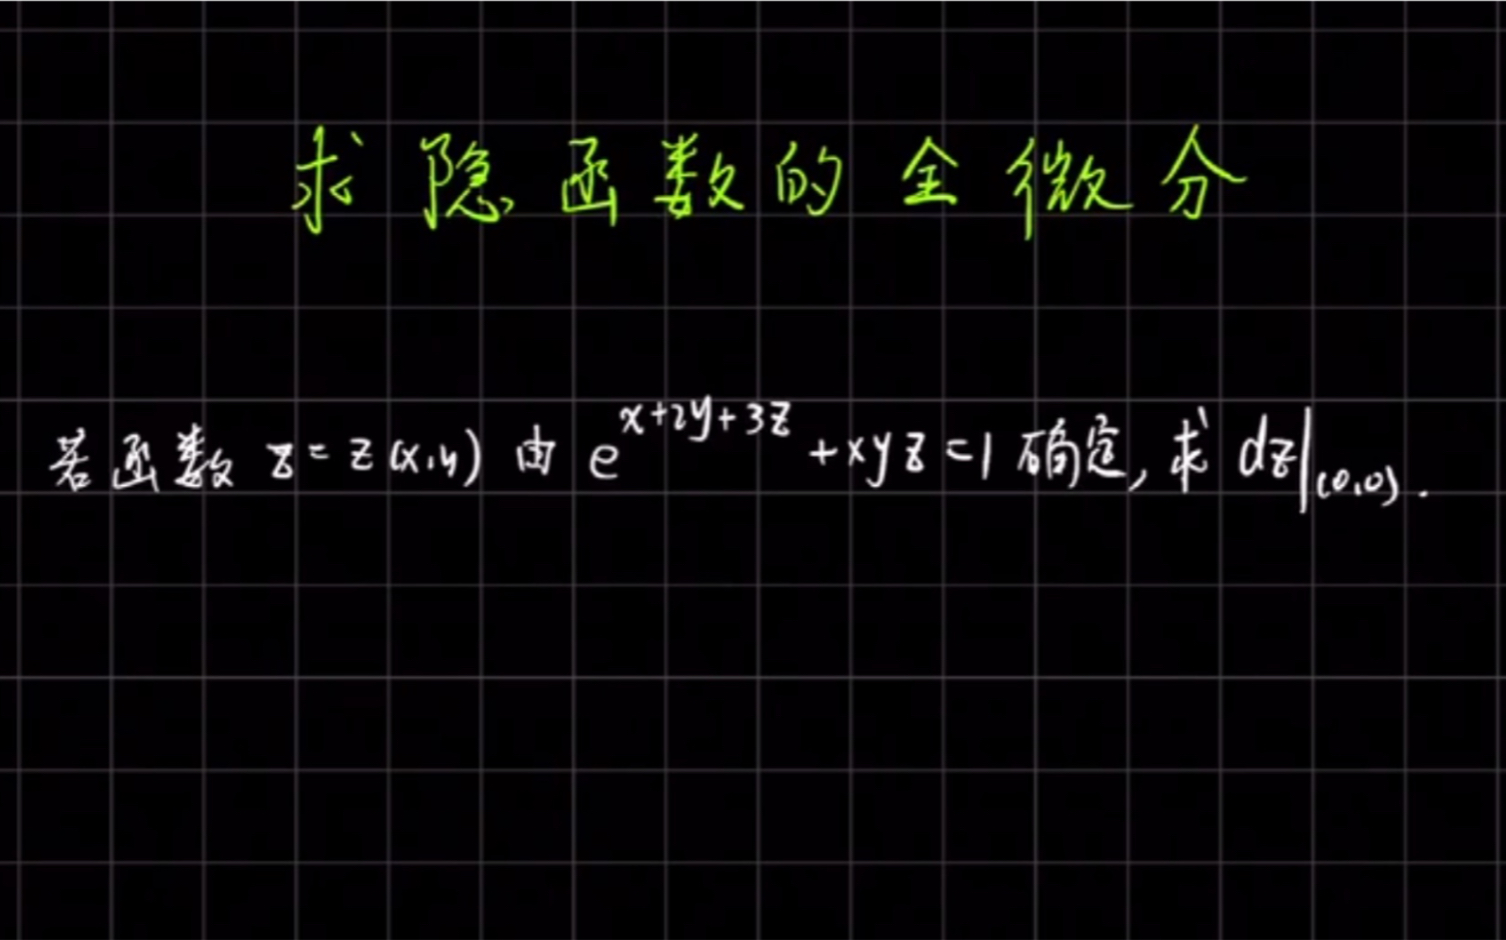 求隐函数的全微分
若函数 z=z(x,y) 由 e^{x+2y+3z}+xyz=1 确定, 求 dz|_{(0,0)}.